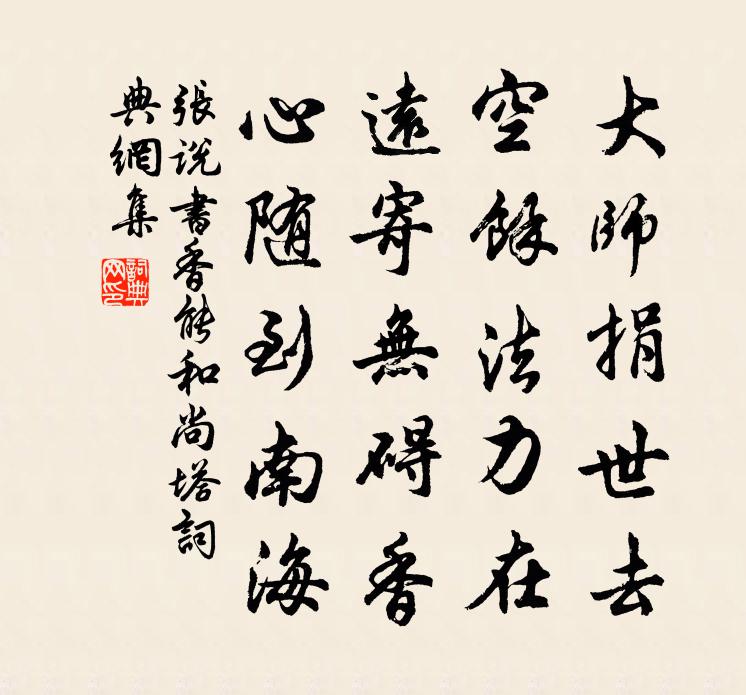 大師捐世去
空餘法力在
遠寄無碍香
心随到南海
張說書香能和尚塔詞
典網集
詞典
网印